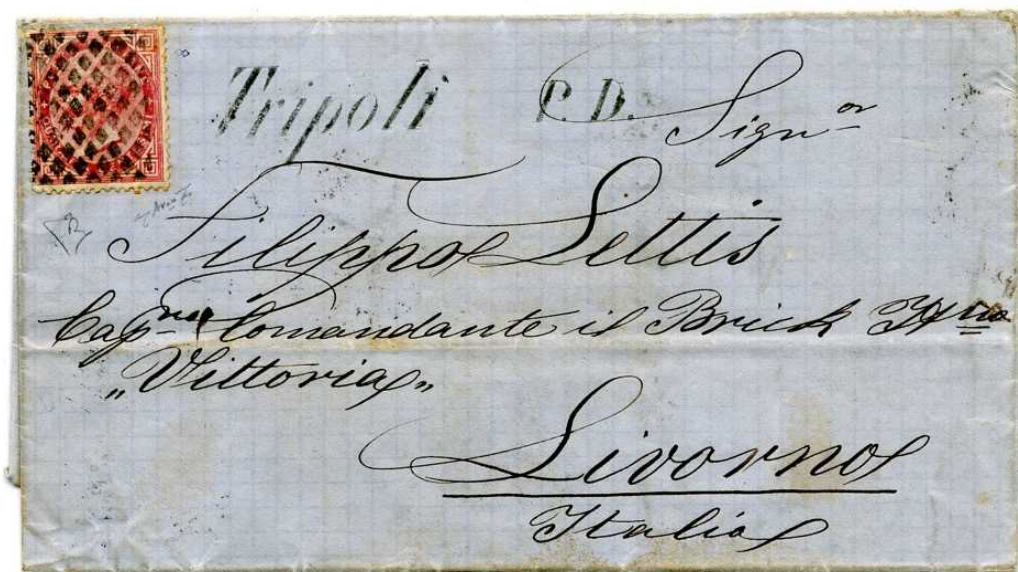 Tripoli P.D.
Sign.or
Filippo Lettis
Cap.no Comandante il Brick
„Vittoria„
Livorno
Italia